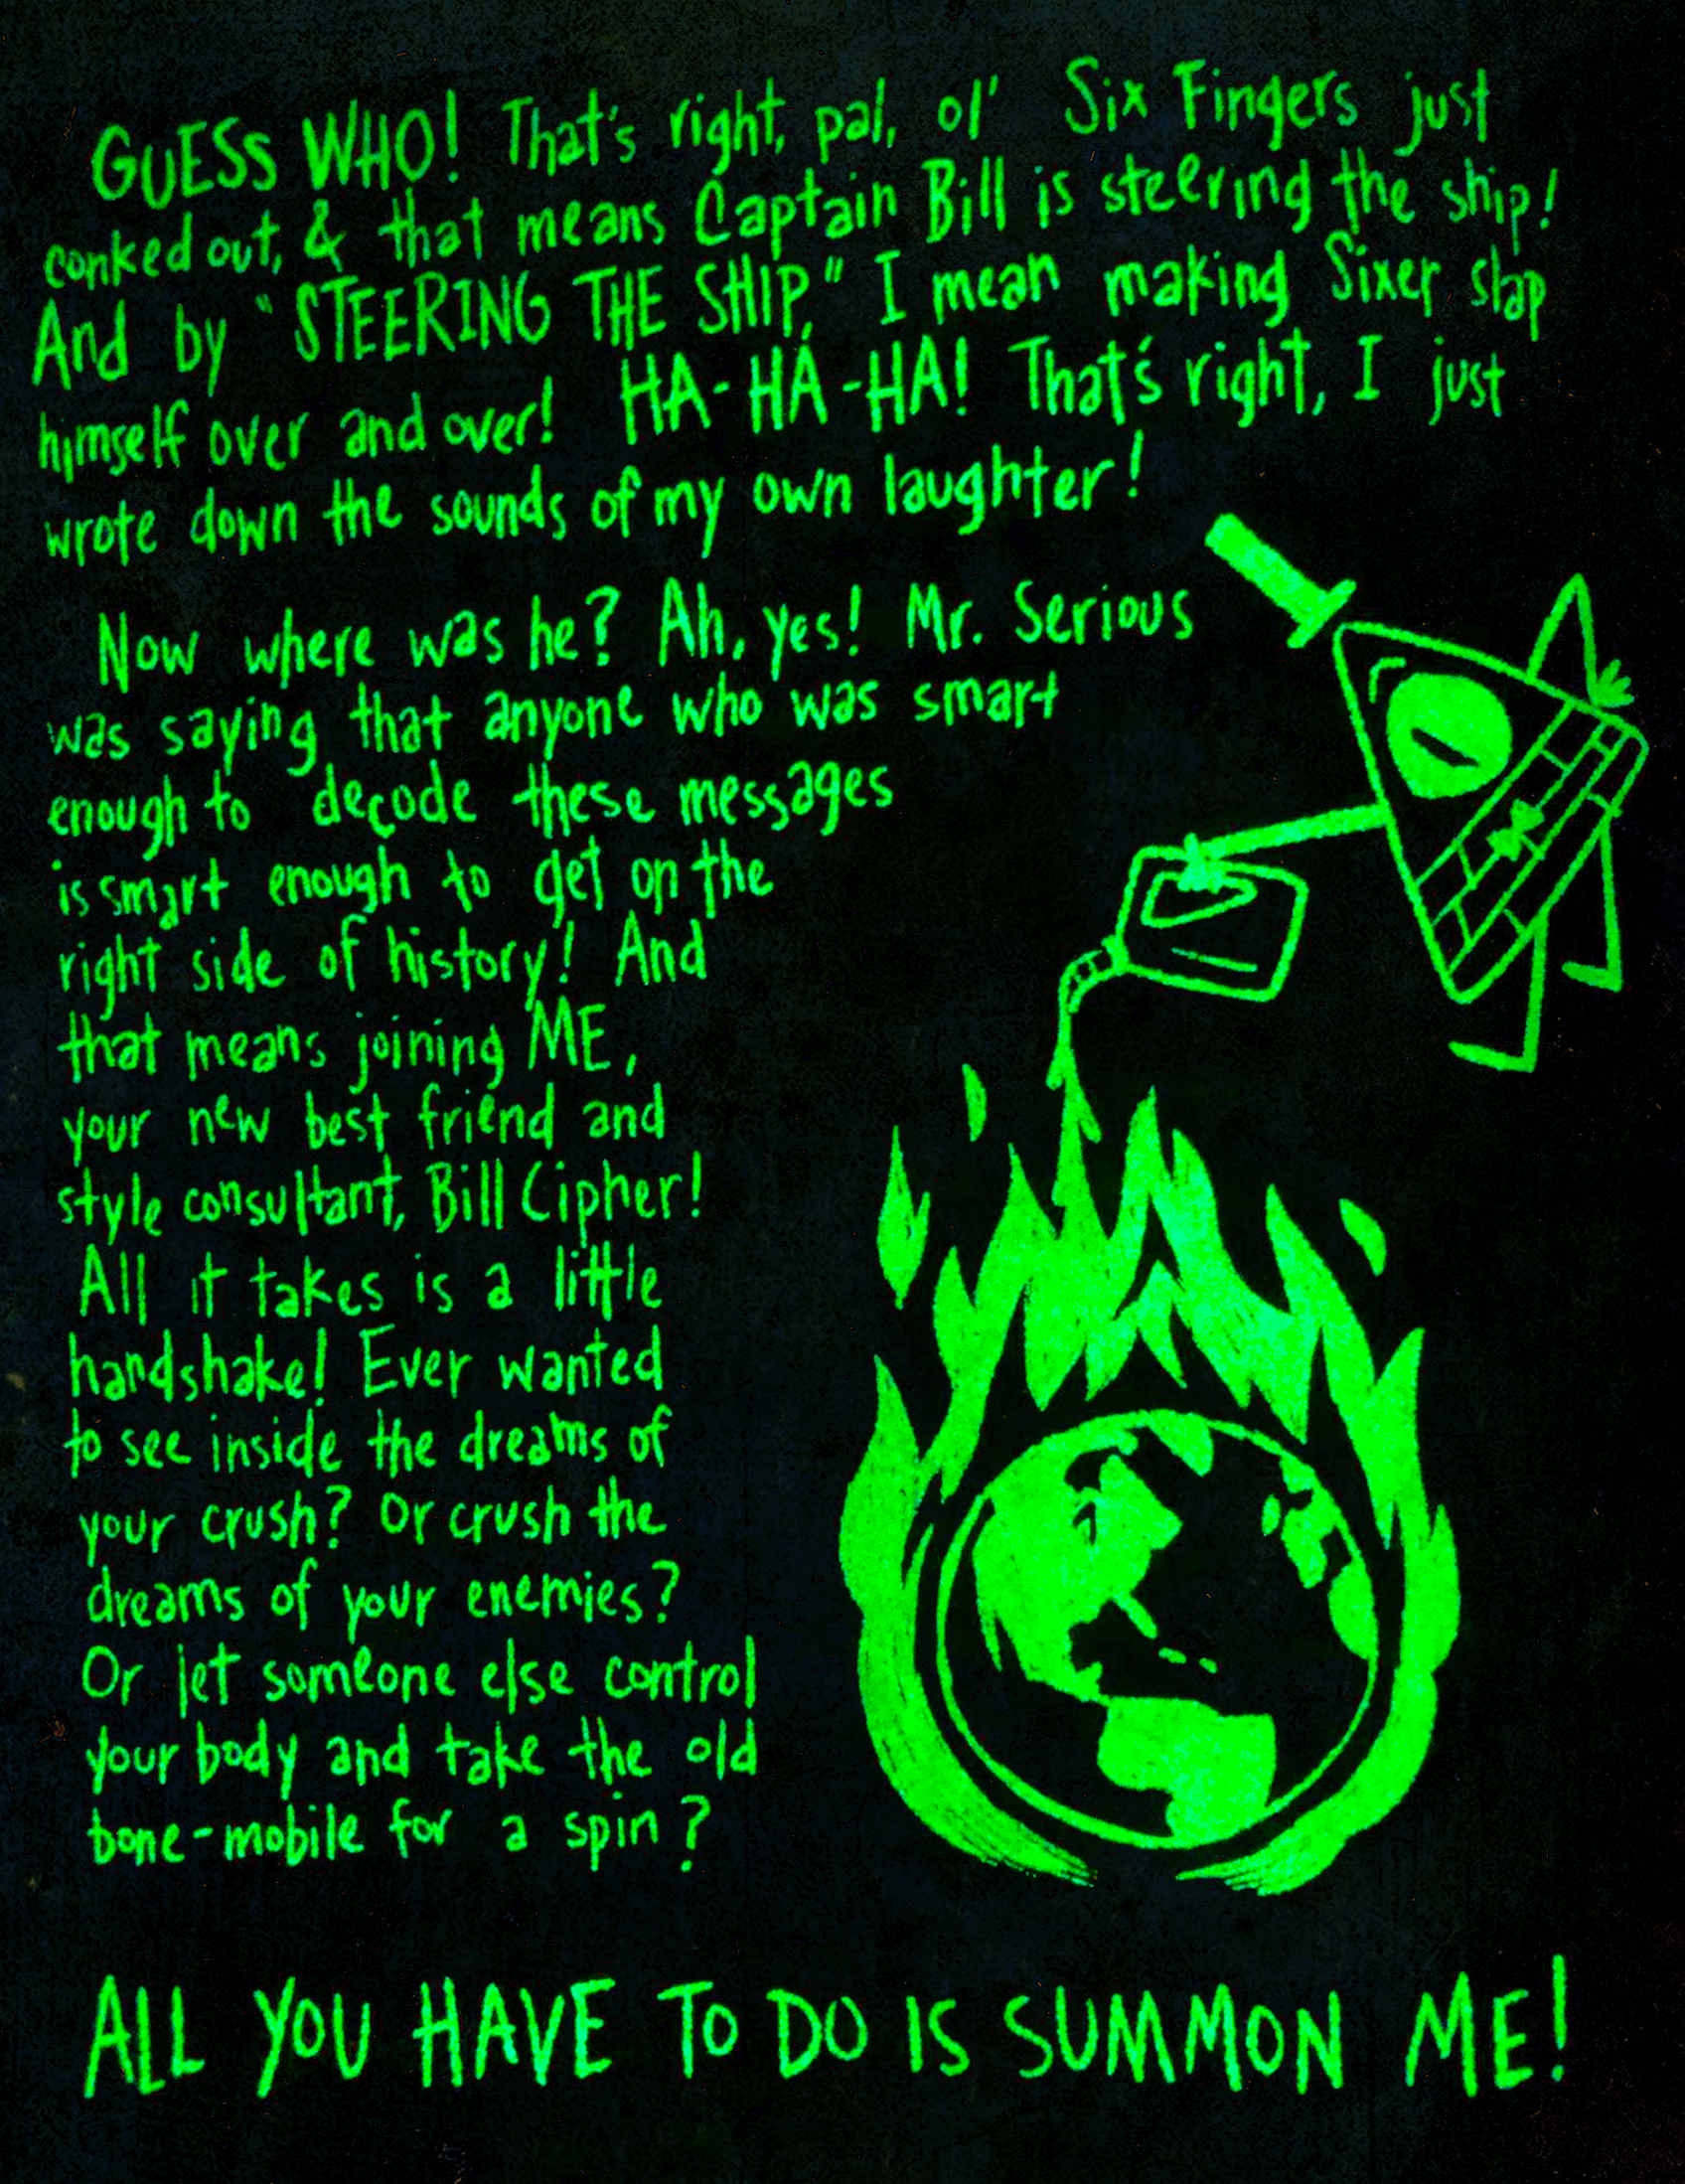 GUESS WHO! That's right, pal, ol' Six Fingers just
conked out, & that means Captain Bill is steering the ship!
And by "STEERING THE SHIP," I mean making Sixer slap
himself over and over! HA-HA-HA! That's right, I just
wrote down the sounds of my own laughter!
Now where was he? Ah, yes! Mr. Serious
was saying that anyone who was smart
enough to decode these messages
is smart enough to get on the
right side of history! And
that means joining ME,
your new best friend and
style consultant, Bill Cipher!
All it takes is a little
handshake! Ever wanted
to see inside the dreams of
your crush? Or crush the
dreams of your enemies?
Or let someone else control
your body and take the old
bone-mobile for a spin?
ALL YOU HAVE TO DO IS SUMMON ME!